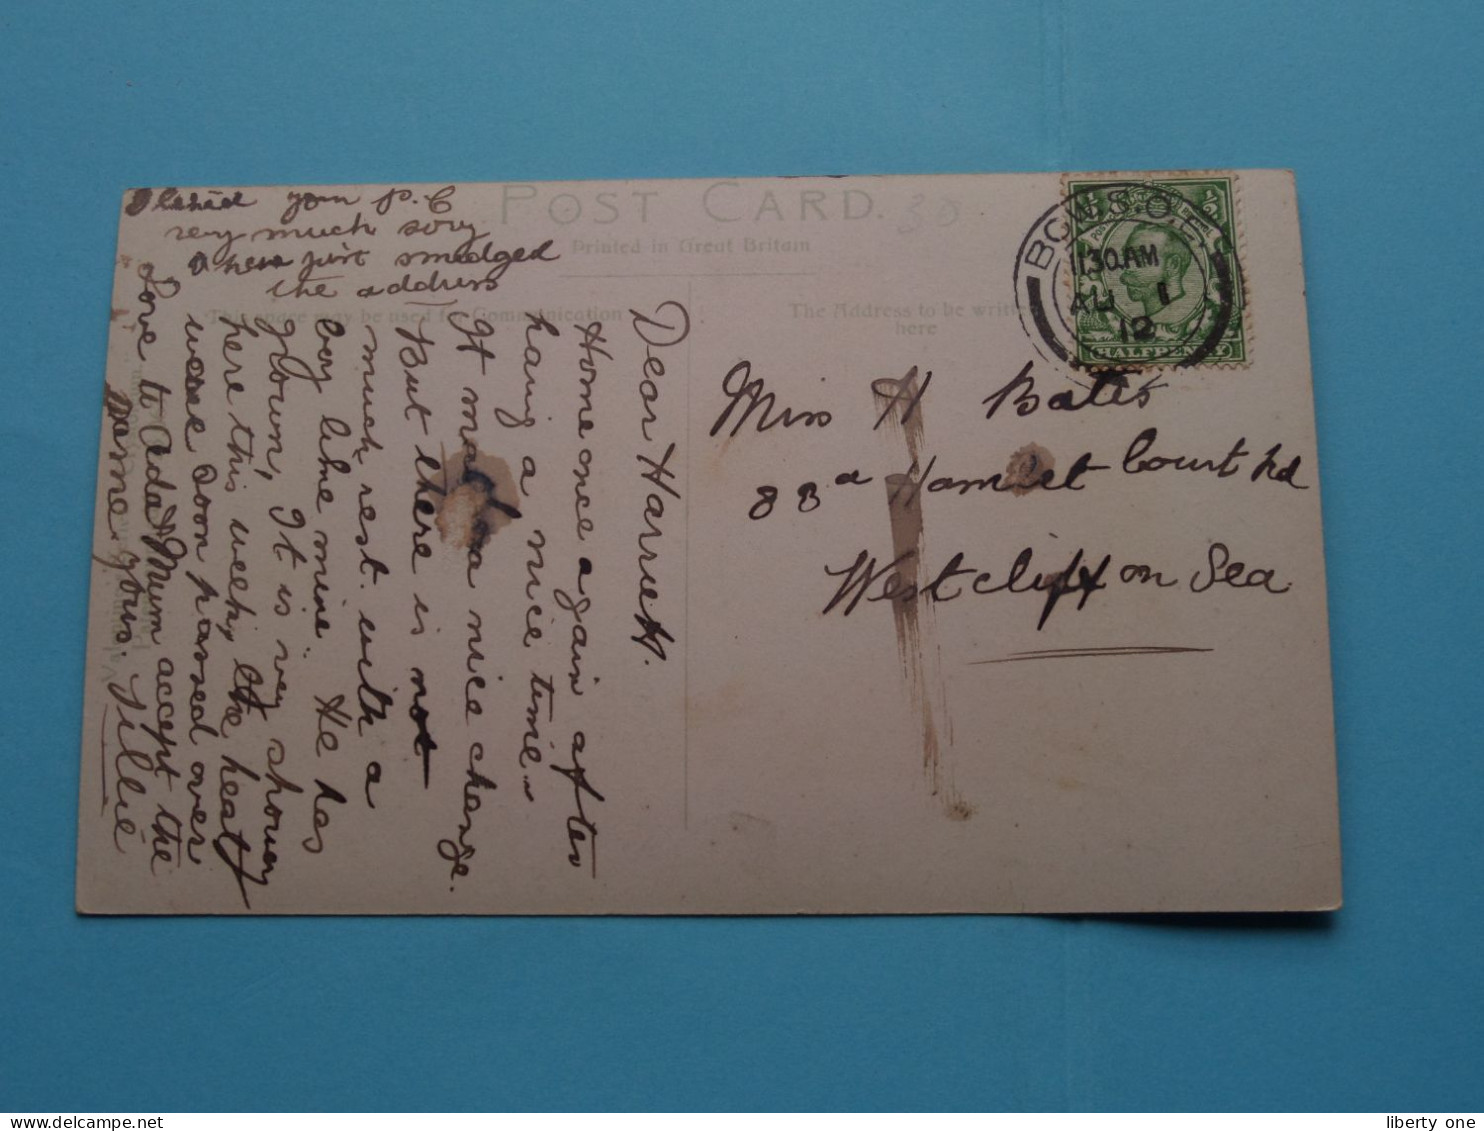 POST CARD.
Printed in Great Britain
This space may be used for Communication
The Address to be written
here
30
BOW S.O.
1130AM
AU 1
12
HALFPENNY
Miss H Bates
88a Hamlet Court Rd
Westcliff on Sea
Dear Harriett.
Home once again after
having a nice time.
It makes a nice change.
But there is not
much rest with a
boy like mine. He has
grown, It is very showery
here this week, the heat
wave soon passed over
Love to Ada & Mum accept the
same yours. Tillie
your P.C
very much sory
I have just smudged
the address
liberty one